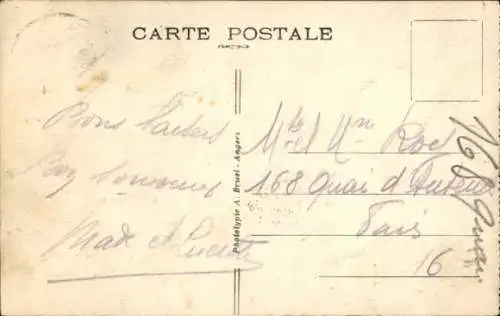 CARTE POSTALE
Bons baisers
Bon souvenir
Made et Lucette
Phototypie A. Bruel - Angers
Mr et Mme
168 Quai d'Auteuil
Paris
16
168 Quai